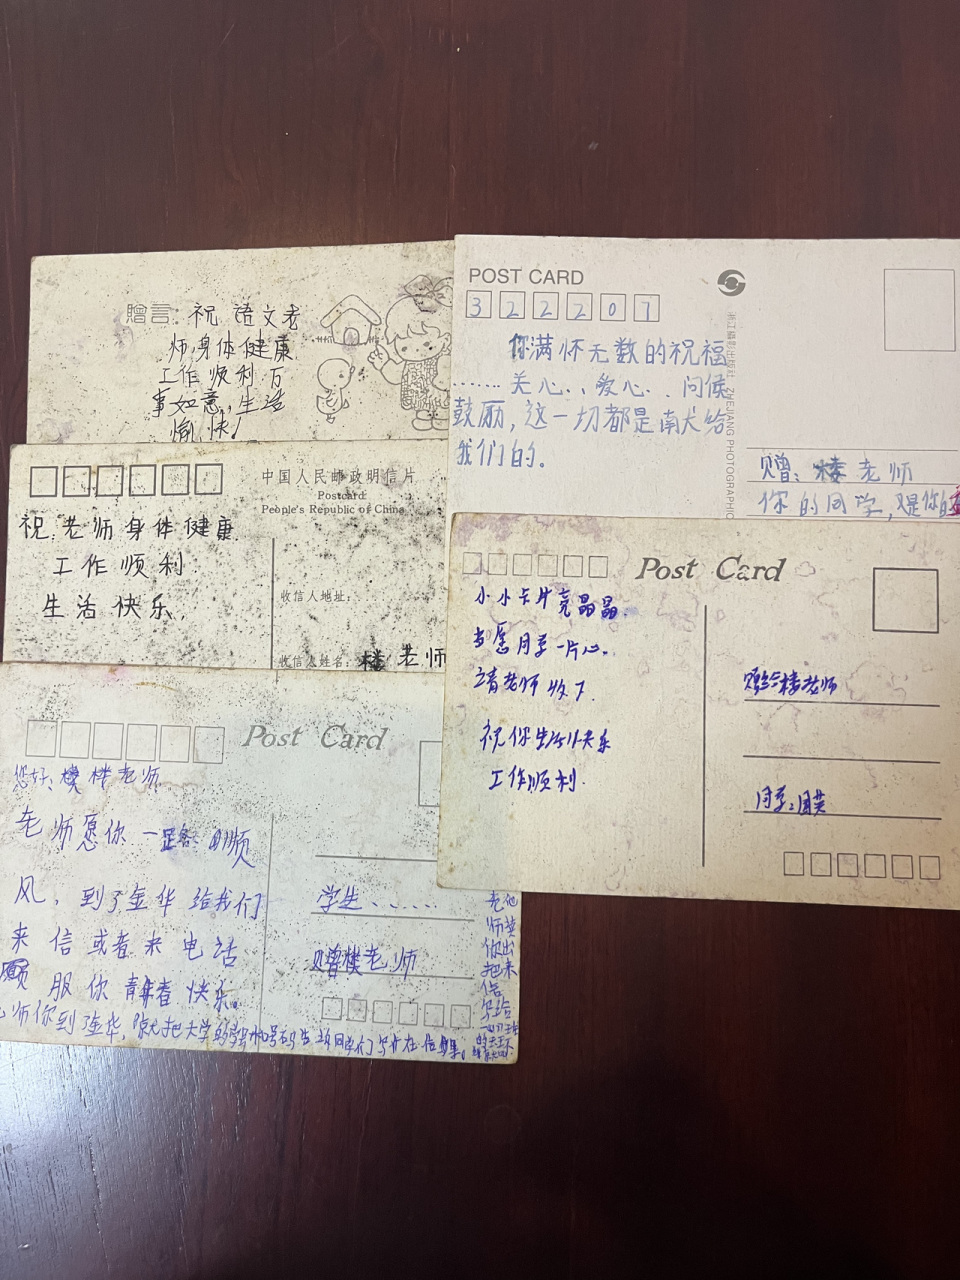 贈言: 祝 语文老
师身体健康
工作顺利万
事如意,生活
愉快!
POST CARD
322201
你满怀无数的祝福
......关心..爱心..问候
鼓励,这一切都是
给
我们的。
浙江摄影出版社 ZHEJIANG PHOTOGRAPHIC
赠: 楼老师
你的同学,又是你的
中国人民邮政明信片
Postcard
People's Republic of China
祝:老师身体健康
工作顺利
生活快乐.
收信人地址:
收信人姓名: 楼老师
Post Card
小小卡片亮晶晶.
片心.
请老师收下.
祝你生活快乐
工作顺利.
赠给楼老师
Post Card
您好: 楼老师
老师愿你一路 顺
风,到了金华给我们
来信或者来电话
服你青春快乐。
师你到金华,就把大学的
学生......
赠楼老师